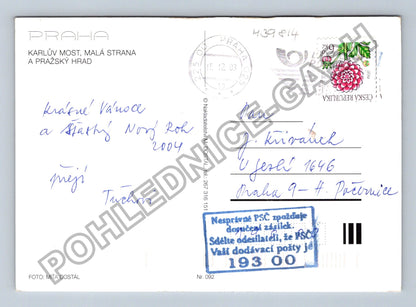 PRAHA
KARLŮV MOST, MALÁ STRANA
A PRAŽSKÝ HRAD
Krásné Vánoce
a šťastný Nový Rok
2004
přejí
FOTO: MÍŤA DOSTÁL
Nr. 092
H39814
ČESKÁ REPUBLIKA
Pan
J. Křivánek
V jezlí 1646
Praha 9-H. Počernice
Nesprávné PSČ zpožďuje
doručení zásilek.
Sdělte odesílateli, že PSČ
Vaší dodávací pošty je
193 00
POHLEDNICE-CASH